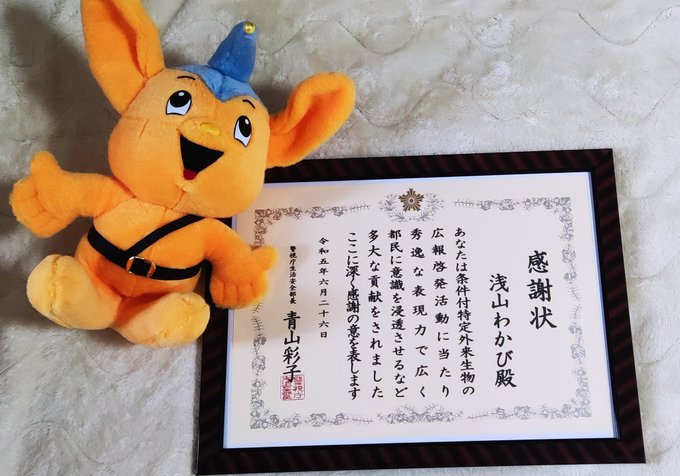 感謝状
浅山わかび殿
あなたは条件付特定外来生物の
広報啓発活動に当たり
秀逸な表現力で広く
都民に意識を浸透させるなど
多大な貢献をされました
ここに深く感謝の意を表します
令和五年六月二十六日
警視庁生活安全部長
青山彩子